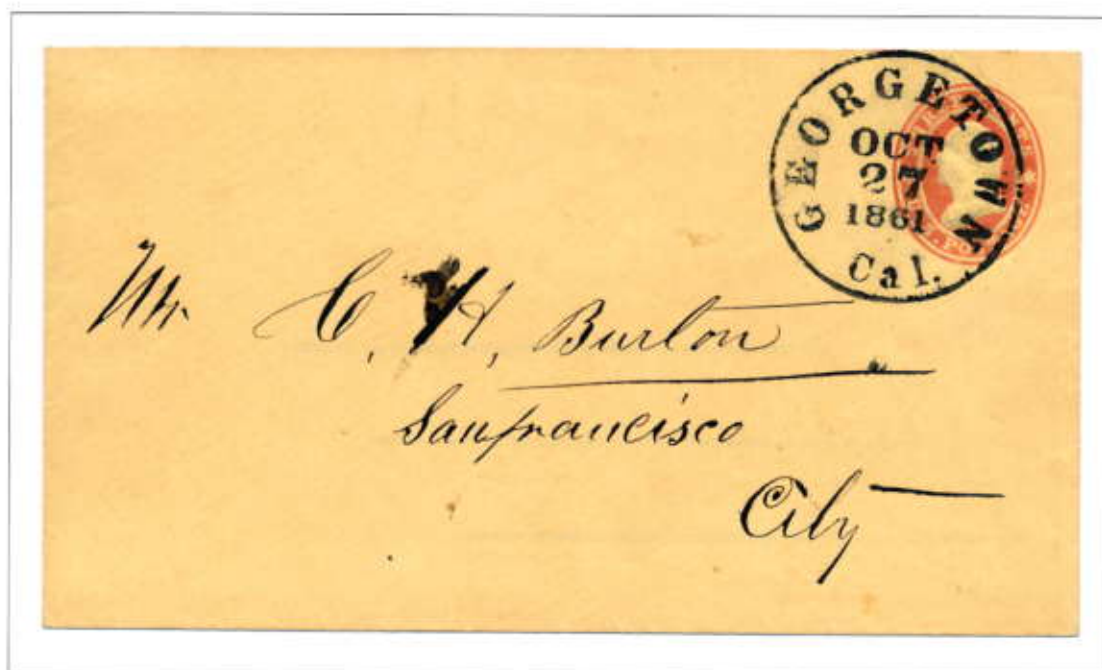 GEORGETOWN
OCT
27
1861
Cal.
Mr. C. H. Burton
Sanfrancisco
City